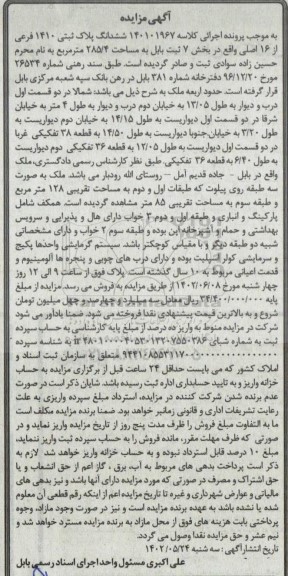 آگهی مزایده
به موجب پرونده اجرائی کلاسه ۱۴۰۱۰۱۹۶۷ ششدانگ پلاک ثبتی ۱۴۱۰ فرعی
از ۱۶ اصلی واقع در بخش ۷ ثبت بابل به مساحت ۲۸۵/۴ مترمربع به نام محرم
حسین زاده سوادی ثبت و صادر گردیده است. طبق سند رهنی شماره ۲۶۵۳۴
مورخ ۹۶/۱۲/۲۰ دفترخانه شماره ۳۸۱ بابل در رهن بانک سپه شعبه مرکزی بابل
قرار گرفته است. حدود اربعه ملک به شرح ذیل می باشد: شمالا در دو قسمت اول
درب و دیوار به طول ۱۳/۰۵ به خیابان دوم درب و دیوار به طول ۴ متر به خیابان
شرقا در دو قسمت اول دیواریست به طول ۱۴/۱۵ به خیابان دوم دیواریست به
طول ۳/۲۰ به خیابان.جنوبا دیواریست به طول ۱۴/۵۰ به قطعه ۳۸ تفکیکی غربا
در دو قسمت اول دیواریست به طول ۱۲/۰۵ به قطعه ۳۶ تفکیکی دوم دیواریست
به طول ۶/۴۰ به قطعه ۳۶ تفکیکی. طبق نظر کارشناس رسمی دادگستری، ملک
واقع در بابل - جاده قدیم آمل – روستای اله رودبار می باشد. ملک به صورت
سه طبقه روی پیلوت که طبقات اول و دوم به مساحت تقریبی ۱۲۸ متر مربع
و طبقه سوم به مساحت تقریبی ۸۵ متر مشاهده گردیده است. همکف شامل
پارکینگ و انباری و طبقه اول و دوم ۳ خواب دارای هال و پذیرایی و سرویس
بهداشتی و حمام و آشپزخانه این بوده و طبقه سوم ۲ خواب و دارای مشخصاتی
شبیه دو طبقه دیگر و با مقیاس کوچکتر باشد. سیستم گرمایشی واحدها پکیج
و سرمایشی کولر اسپلیت بوده و دارای درب های چوبی و پنجره ها آلومینیوم و
قدمت اعیانی مربوط به ۱۰ سال گذشته است. پلاک فوق از ساعت ۹ الی ۱۲ روز
چهار شنبه مورخ ۱۴۰۲/۰۶/۰۸ از طریق مزایده به فروش می رسد. مزایده از مبلغ
پایه ۳۴/۴۰۰/۰۰۰/۰۰۰ ریال معادل سه میلیارد و چهارصد و چهل میلیون تومان
شروع و به بالاترین قیمت پیشنهادی نقدا فروخته می شود. ضمنا یادآور می شود
شرکت در مزایده منوط به واریز ده درصد از مبلغ پایه کارشناسی به حساب سپرده
متعلق به سازمان ثبت اسناد و
املاک کشور که می بایست حداقل ۲۴ ساعت قبل از برگزاری مزایده به حساب
خزانه واریز و به تایید حسابداری اداره ثبت رسیده باشد. شایان ذکر است در صورت
عدم برنده شدن شرکت کننده در مزایده، استرداد مبلغ سپرده واریزی به علت
رعایت تشریفات اداری و قانونی زمانبر خواهد بود. ضمنا برنده مزایده مکلف است
ما به التفاوت مبلغ فروش را ظرف مدت پنج روز از تاریخ مزایده واریز نماید و در
صورتی که ظرف مهلت مقرر، مانده فروش را به حساب سپرده ثبت واریز ننماید،
مبلغ ۱۰ درصد قابل استرداد نبوده و به حساب خزانه واریز خواهد شد. لازم به
ذکر است پرداخت بدهی های مربوط به آب، برق، گاز اعم از حق انشعاب و یا
حق اشتراک و مصرف در صورتی که مورد مزایده دارای آنها باشد و نیز بدهی های
مالیاتی و عوارض شهرداری و غیره تا تاریخ مزایده اعم از اینکه رقم قطعی آن معلوم
شده یا نشده باشد به عهده برنده مزایده است و نیز در صورت وجود مازاد، وجوه
پرداختی بابت هزینه های فوق از محل مازاد به برنده مزایده مسترد خواهد شد و
نیم عشر و حق مزایده نقدا وصول می گردد.
تاریخ انتشار آگهی: سه شنبه ۱۴۰۲/۰۵/۲۴
علی اکبری مسئول واحد اجرای اسناد رسمی بابل